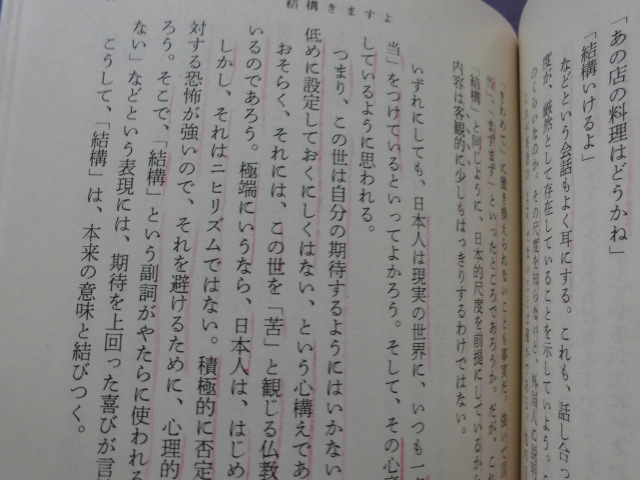 結構をますよ
「あの店の料理はどうかね」
「結構いけるよ」
などという会話もよく耳にする。これも、話し合っ
度が、厳然として存在していることを示していよう。
のくらいなのか。その尺度を知らないと、外国人に説明
「きわめて」に置き換えられないことも事実だ。強いて言
「まずまず」といったところであろうか。だが、これ
「結構」と同じように、日本的尺度を前提にしているから
内容は客観的に少しもはっきりするわけではない。
いずれにしても、日本人は現実の世界に、いつも一
当」をつけているといってよかろう。そして、その心
しているように思われる。
つまり、この世は自分の期待するようにはいかない
低めに設定しておくにしくはない、という心構えであ
おそらく、それには、この世を「苦」と観じる仏教
いるのであろう。極端にいうなら、日本人は、はじめ
しかし、それはニヒリズムではない。積極的に否定
対する恐怖が強いので、それを避けるために、心理的
ろう。そこで、「結構」という副詞がやたらに使われる
ない」などという表現には、期待を上回った喜びが言
こうして、「結構」は、本来の意味と結びつく。